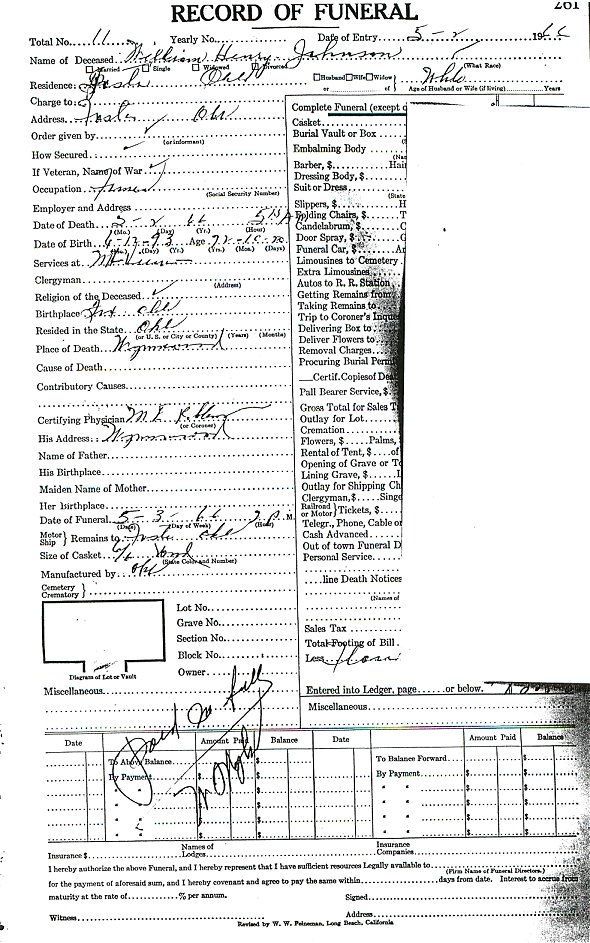 RECORD OF FUNERAL
261
Total No. 11 Yearly No. Date of Entry 5-2 1966
Name of Deceased William Henry Johnson
Married Single Widowed Divorced (What Race)
Residence: Foster Okla Husband Wife Widow White
or of } Age of Husband or Wife (if living) Years
Charge to:
Address Foster Okl
Order given by
(or informant)
How Secured
If Veteran, Name of War
Occupation Farmer
(Social Security Number)
Employer and Address
Date of Death 5-2 66 5 15 A M
(Mo.) (Day) (Yr.) (Hour)
Date of Birth 6-12-93 Age 72-10-20
(Mo.) (Day) (Yr.) (Yrs.) (Mo.) (Days)
Services at
Clergyman
(Address)
Religion of the Deceased
Birthplace Okl
Resided in the State Okl
(or U. S. or City or County) (Years) (Months)
Place of Death Wynnewood
Cause of Death
Contributory Causes
Certifying Physician M E
(or Coroner)
His Address: Wynnewood
Name of Father
His Birthplace
Maiden Name of Mother
Her Birthplace
Date of Funeral 5-3-66 2 P. M.
(Date) (Day of Week) (Hour)
Motor Ship } Remains to Foster Okl
Size of Casket 6/6 Wood
(State Color and Number)
Manufactured by Okl
Cemetery
Crematory }
Complete Funeral (except
Casket
Burial Vault or Box
Embalming Body
(Na
Barber, $ Hair
Dressing Body, $
Suit or Dress
Slippers, $ H
Folding Chairs, $ T
Candelabrum, $ C
Door Spray, $ G
Funeral Car, $ A
Limousines to Cemetery
Extra Limousines
Autos to R. R. Station
Getting Remains from
Taking Remains to
Trip to Coroner's Inque
Delivering Box to
Deliver Flowers to
Removal Charges
Procuring Burial Perm
Certif. Copies of Dea
Pall Bearer Service, $
Gross Total for Sales T
Outlay for Lot
Cremation
Flowers, $ Palms,
Rental of Tent, $ of
Opening of Grave or To
Lining Grave, $
Outlay for Shipping Ch
Clergyman, $ Singe
Railroad or Motor } Tickets, $
Telegr., Phone, Cable or
Cash Advanced
Out of town Funeral D
Personal Service
line Death Notices
(Names of
Sales Tax
Total Footing of Bill
Less
Entered into Ledger, page or below.
Miscellaneous
Lot No.
Grave No.
Section No.
Block No.
Owner
Diagram of Lot or Vault
Miscellaneous
Paid in full
Date Amount Paid Balance Date Amount Paid Balance
To Above Balance To Balance Forward
By Payment $ $ By Payment $ $
" " $ $ " " $ $
" " $ $ " " $ $
" " $ $ " " $ $
Insurance $ Names of Lodges Insurance Companies
I hereby authorize the above Funeral, and I hereby represent that I have sufficient resources Legally available to
(Firm Name of Funeral Directors.)
for the payment of aforesaid sum, and I hereby covenant and agree to pay the same within days from date. Interest to accrue from
maturity at the rate of % per annum. Signed
Witness Address
Revised by W. W. Peineman, Long Beach, California